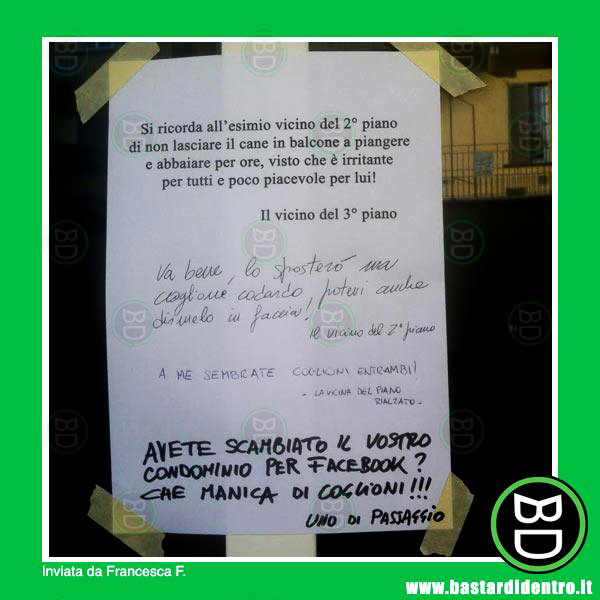 Si ricorda all'esimio vicino del 2° piano
di non lasciare il cane in balcone a piangere
e abbaiare per ore, visto che è irritante
per tutti e poco piacevole per lui!
Il vicino del 3° piano
Va bene, lo sposterò ma
coglione codardo, potevi anche
dirmelo in faccia!
Il vicino del 2° piano
A ME SEMBRATE COGLIONI ENTRAMBI!
- LA VICINA DEL PIANO
RIALZATO -
AVETE SCAMBIATO IL VOSTRO
CONDOMINIO PER FACEBOOK?
CHE MANICA DI COGLIONI!!!
UNO DI PASSAGGIO
BD
Inviata da Francesca F.
www.bastardidentro.it